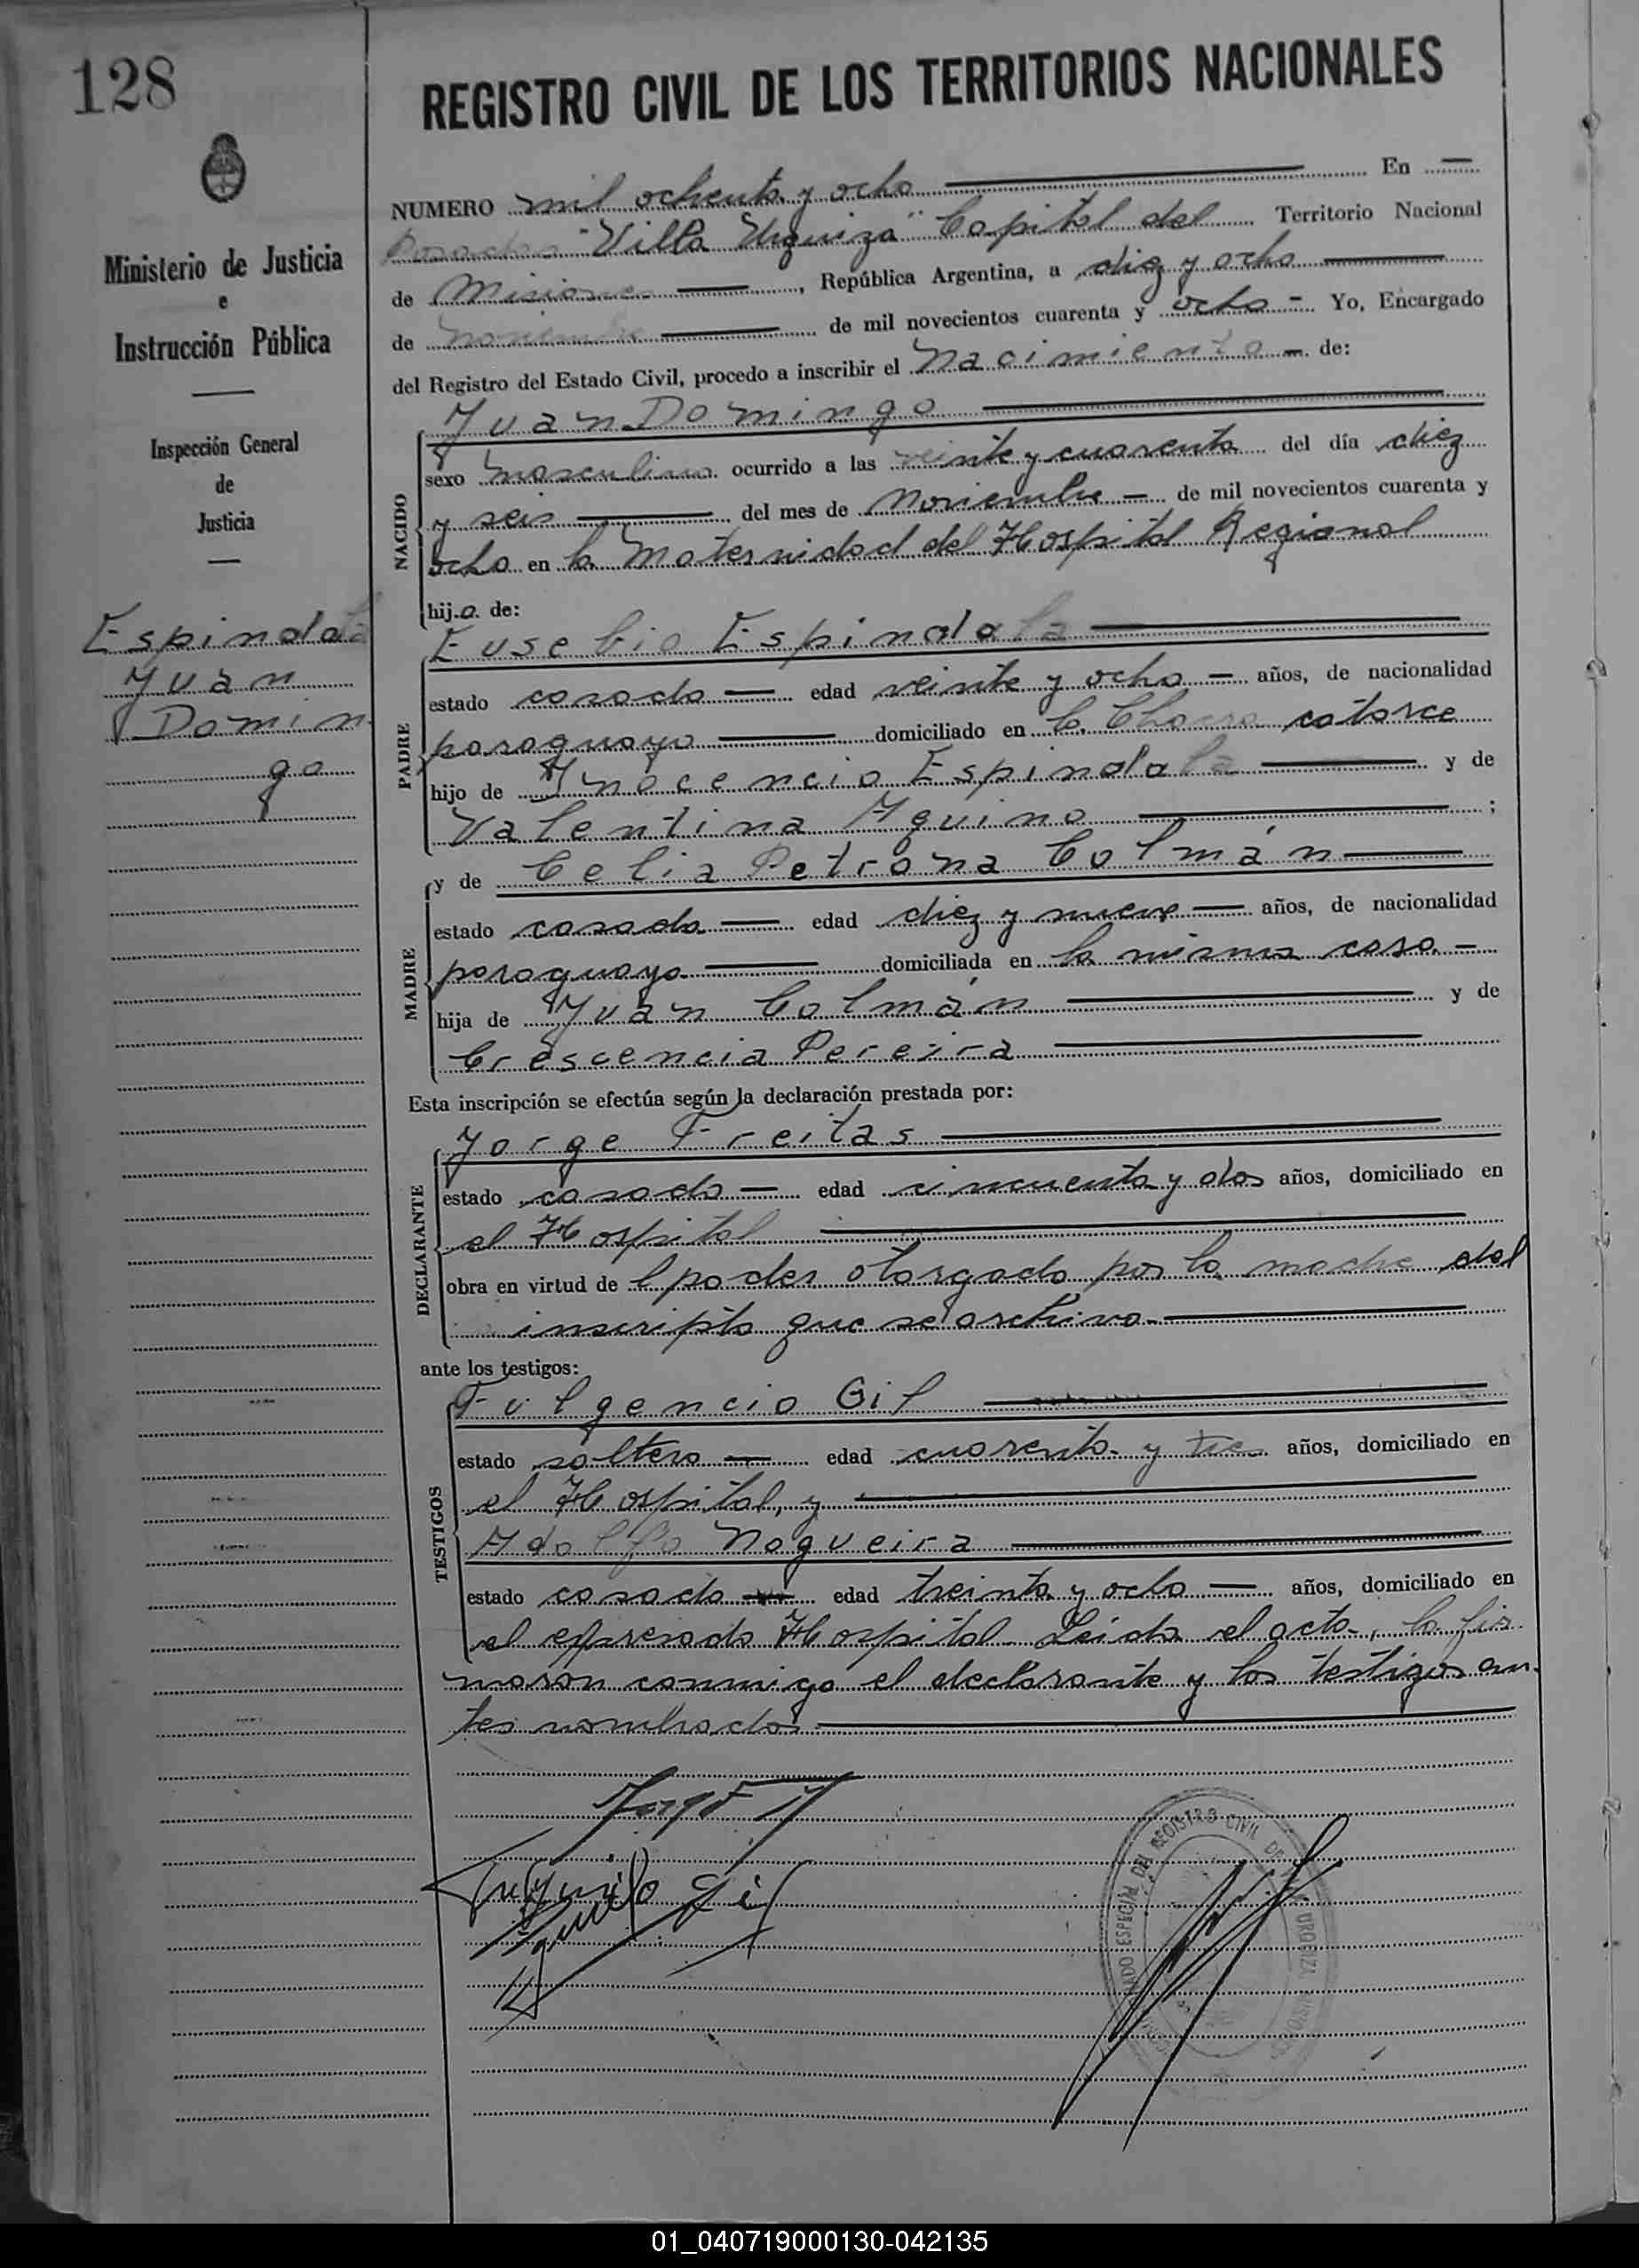 128
REGISTRO CIVIL DE LOS TERRITORIOS NACIONALES
Ministerio de Justicia
e
Instrucción Pública
Inspección General
de
Justicia
Espinola
Juan
Domin
go
NUMERO mil ochenta y ocho En
Posadas "Villa Urquiza" Capital del Territorio Nacional
de Misiones, República Argentina, a diez y ocho
de noviembre de mil novecientos cuarenta y ocho Yo, Encargado
del Registro del Estado Civil, procedo a inscribir el Nacimiento de:
NACIDO
Juan Domingo
sexo masculino ocurrido a las veinte y cuarenta del día diez
y seis del mes de noviembre de mil novecientos cuarenta y
ocho en la Maternidad del Hospital Regional
hijo de:
PADRE
Eusebio Espinola
estado casado edad veinte y ocho años, de nacionalidad
paraguayo domiciliado en la Chacra catorce
hijo de Inocencio Espinola y de
Valentina Aquino ;
MADRE
y de Celia Petrona Colmán
estado casada edad diez y nueve años, de nacionalidad
paraguaya domiciliada en la misma casa
hija de Juan Colmán y de
Crescencia Pereira
Esta inscripción se efectúa según la declaración prestada por:
DECLARANTE
Jorge Freitas
estado casado edad cincuenta y dos años, domiciliado en
el Hospital
obra en virtud de l poder otorgado por la madre del
inscripto que se archiva.
ante los testigos:
TESTIGOS
Fulgencio Gil
estado soltero edad cuarenta y tres años, domiciliado en
el Hospital, y
Adolfo Nogueira
estado casado edad treinta y ocho años, domiciliado en
el expresado Hospital. Leida el acta, la fir
maron conmigo el declarante y los testigos an-
tes nombrados
REGISTRO CIVIL
01_040719000130-042135